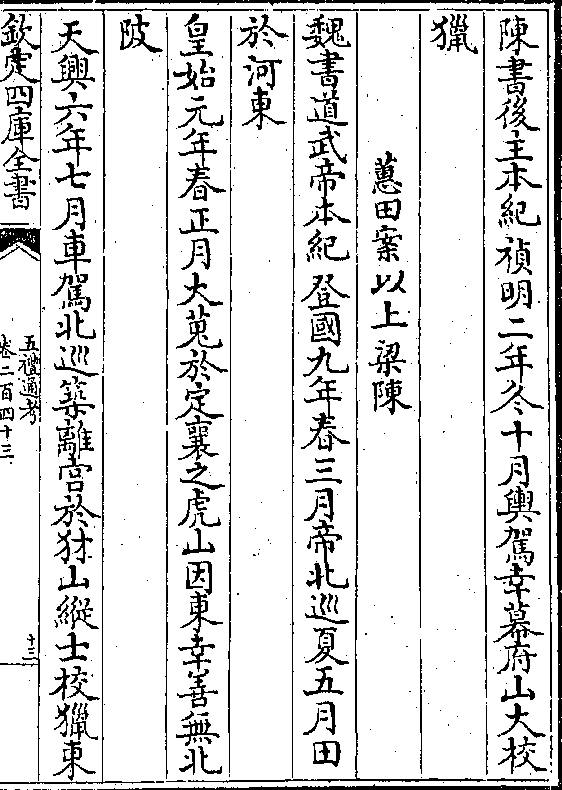 陳書後主本紀禎明二年冬十月輿駕幸幕府山大校
獵
蕙田案以上梁陳
魏書道武帝本紀登國九年春三月帝北巡夏五月田
於河東
皇始元年春正月大蒐於定襄之虎山因東幸善無北
陂
天興六年七月車駕北巡築離宫於犲山縱士校獵東
欽定四庫全書
五禮通考
卷二百四十三
十三